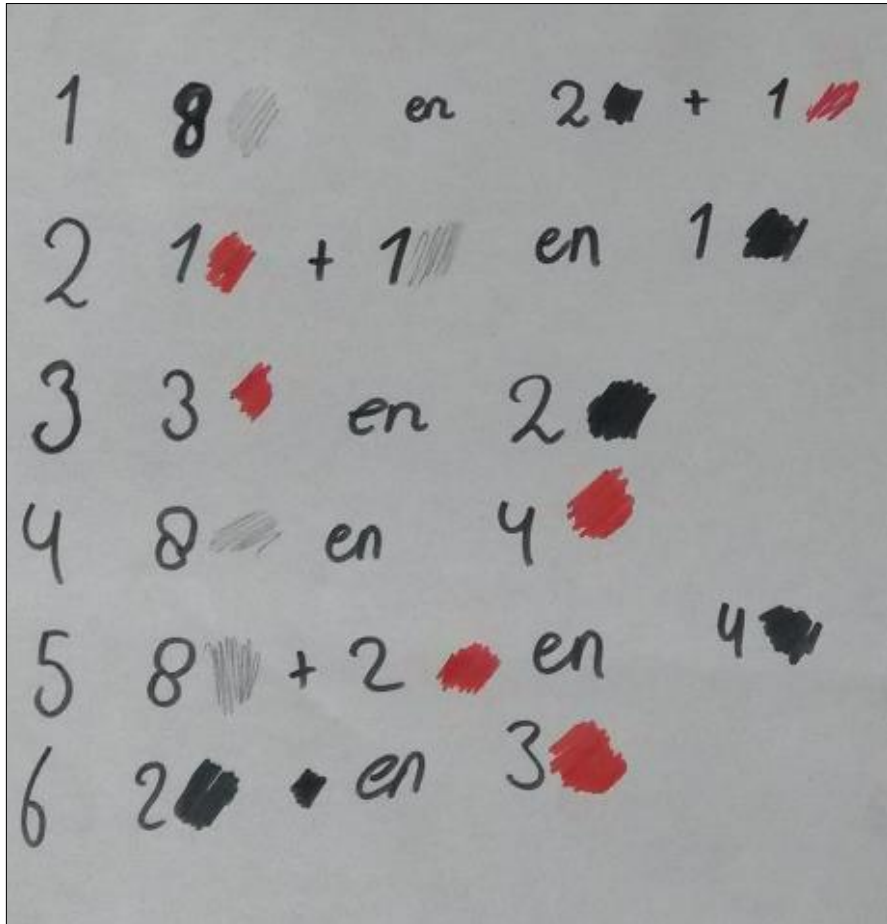 1 8 en 2 + 1
2 1 + 1 en 1
3 3 en 2
4 8 en 4
5 8 + 2 en 4
6 2 en 3